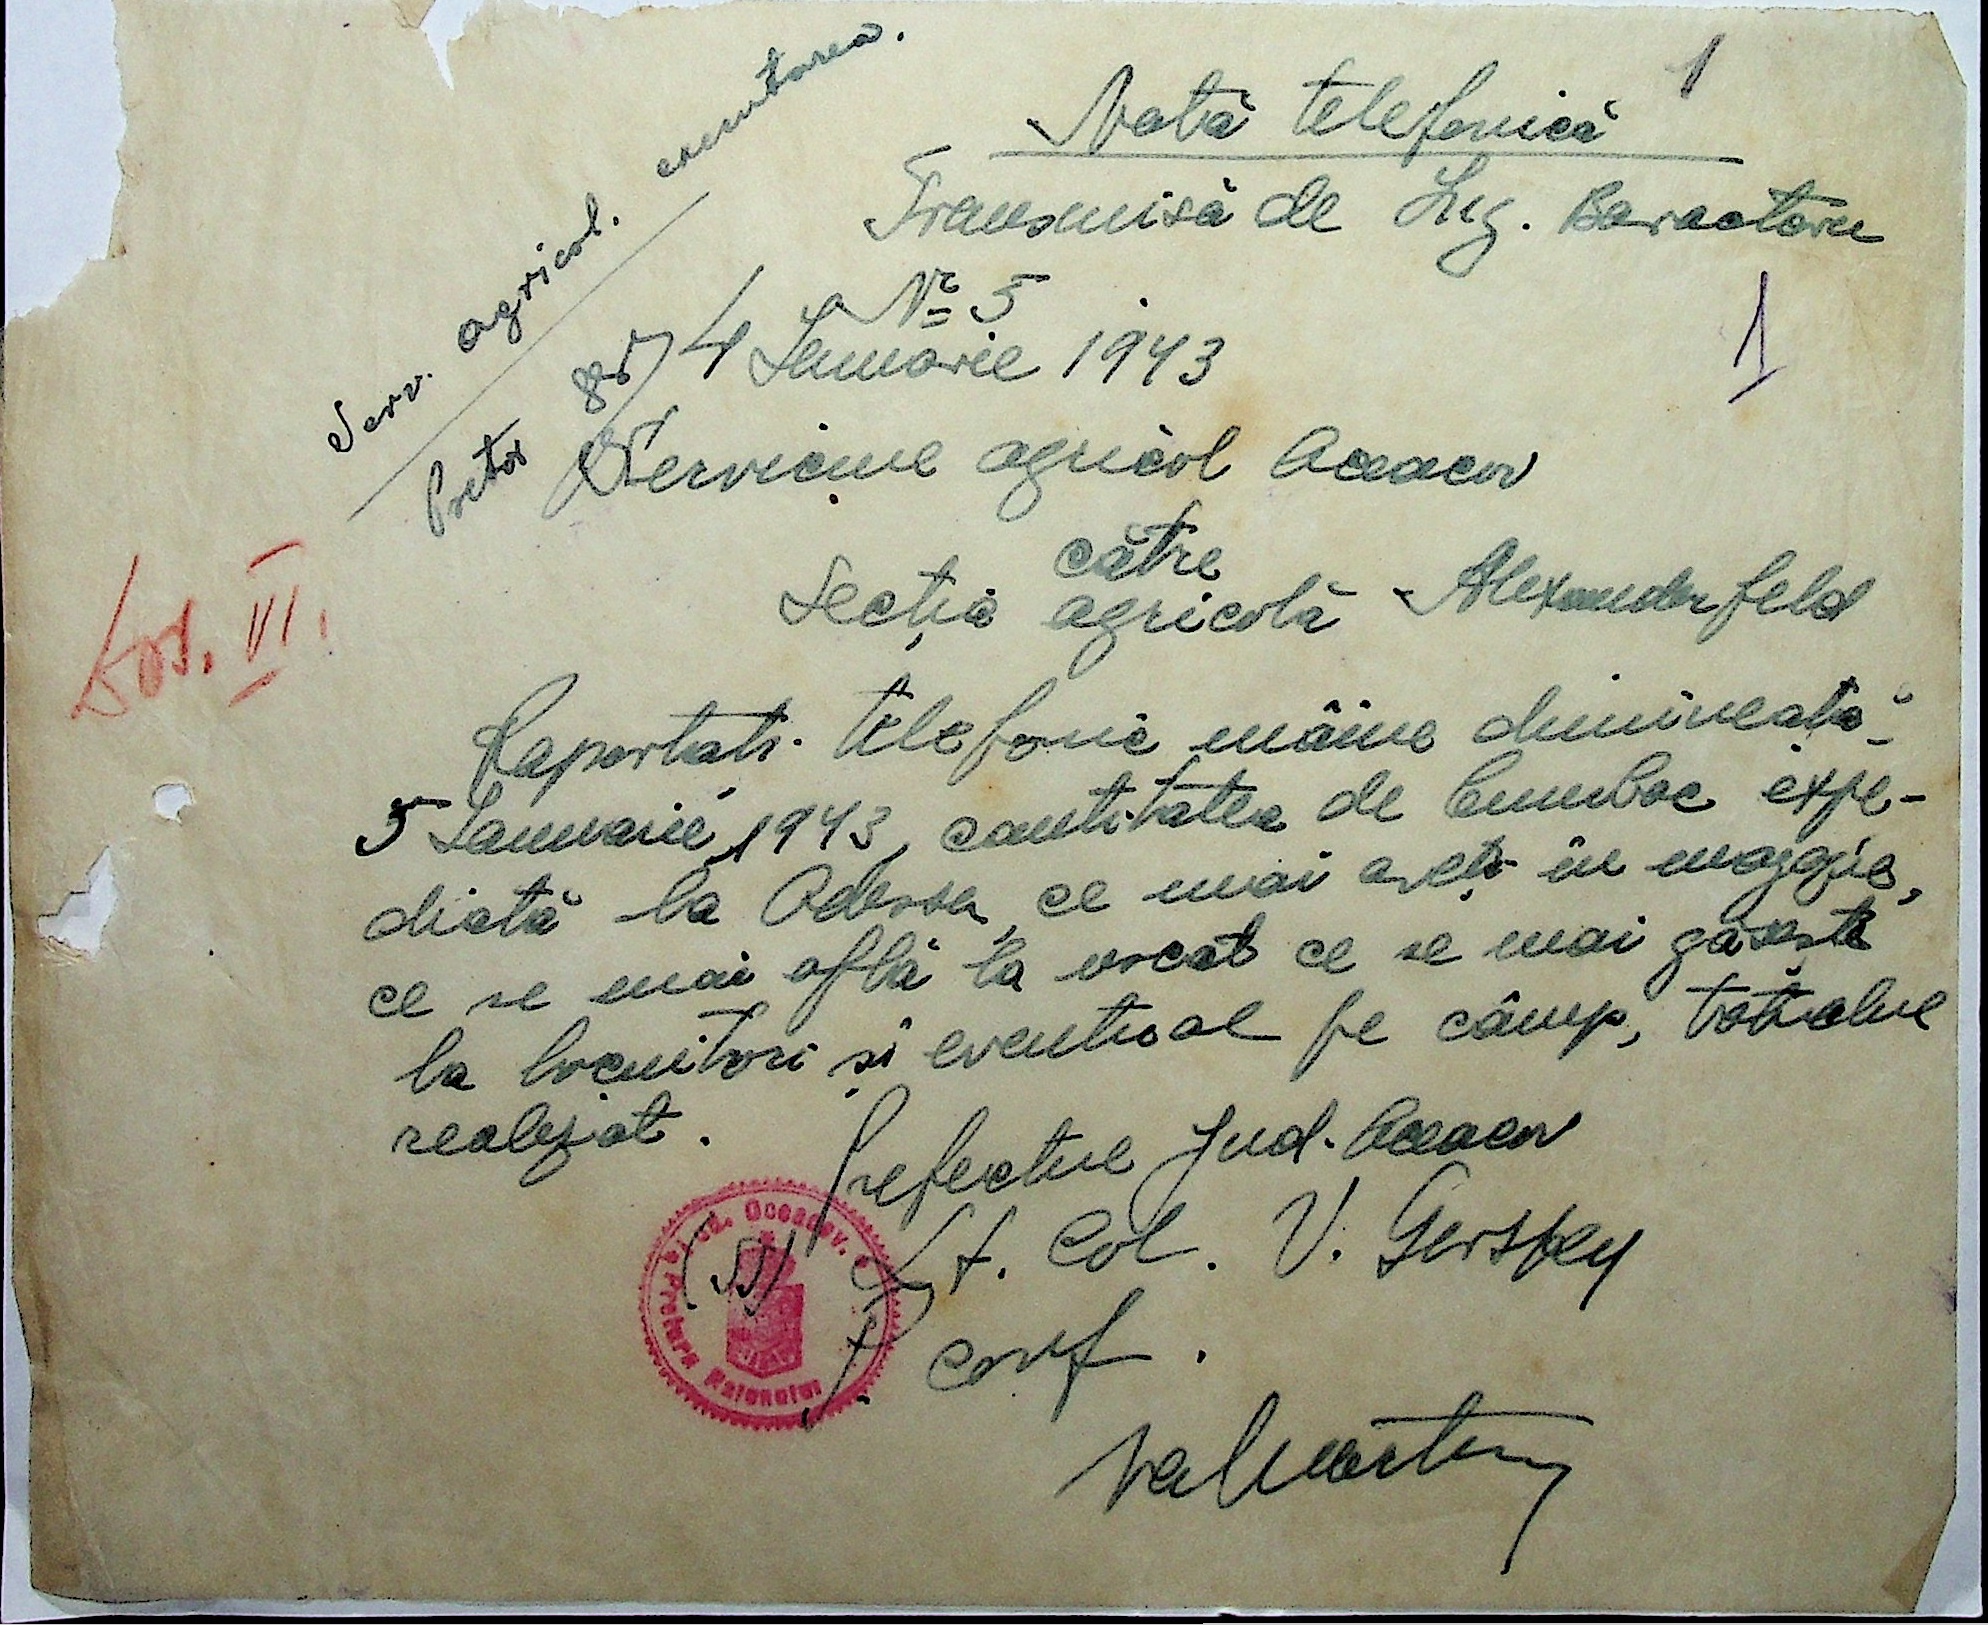 1
Notă telefonică
Transmisă de Ing. Baractaru
No 5
4 Ianuarie 1943
1
Serv. agricol. executarea.
Pretor
Serviciul agricol Oceacov
către
Secția agricolă Alexanderfeld
Dos. VI.
Raportati telefonic mâine dimineață
5 Ianuarie 1943, cantitatea de bumbac expe-
diată la Odessa, ce mai aveți în magazie,
ce se mai află la uscat ce se mai găsește
la locuitori și eventual pe câmp, totalul
realizat.
Prefectul Jud. Oceacov
(ss) Lt. Col. V. Gerskey
p. conf.
Jud. Oceacov.
Pretura Raionului